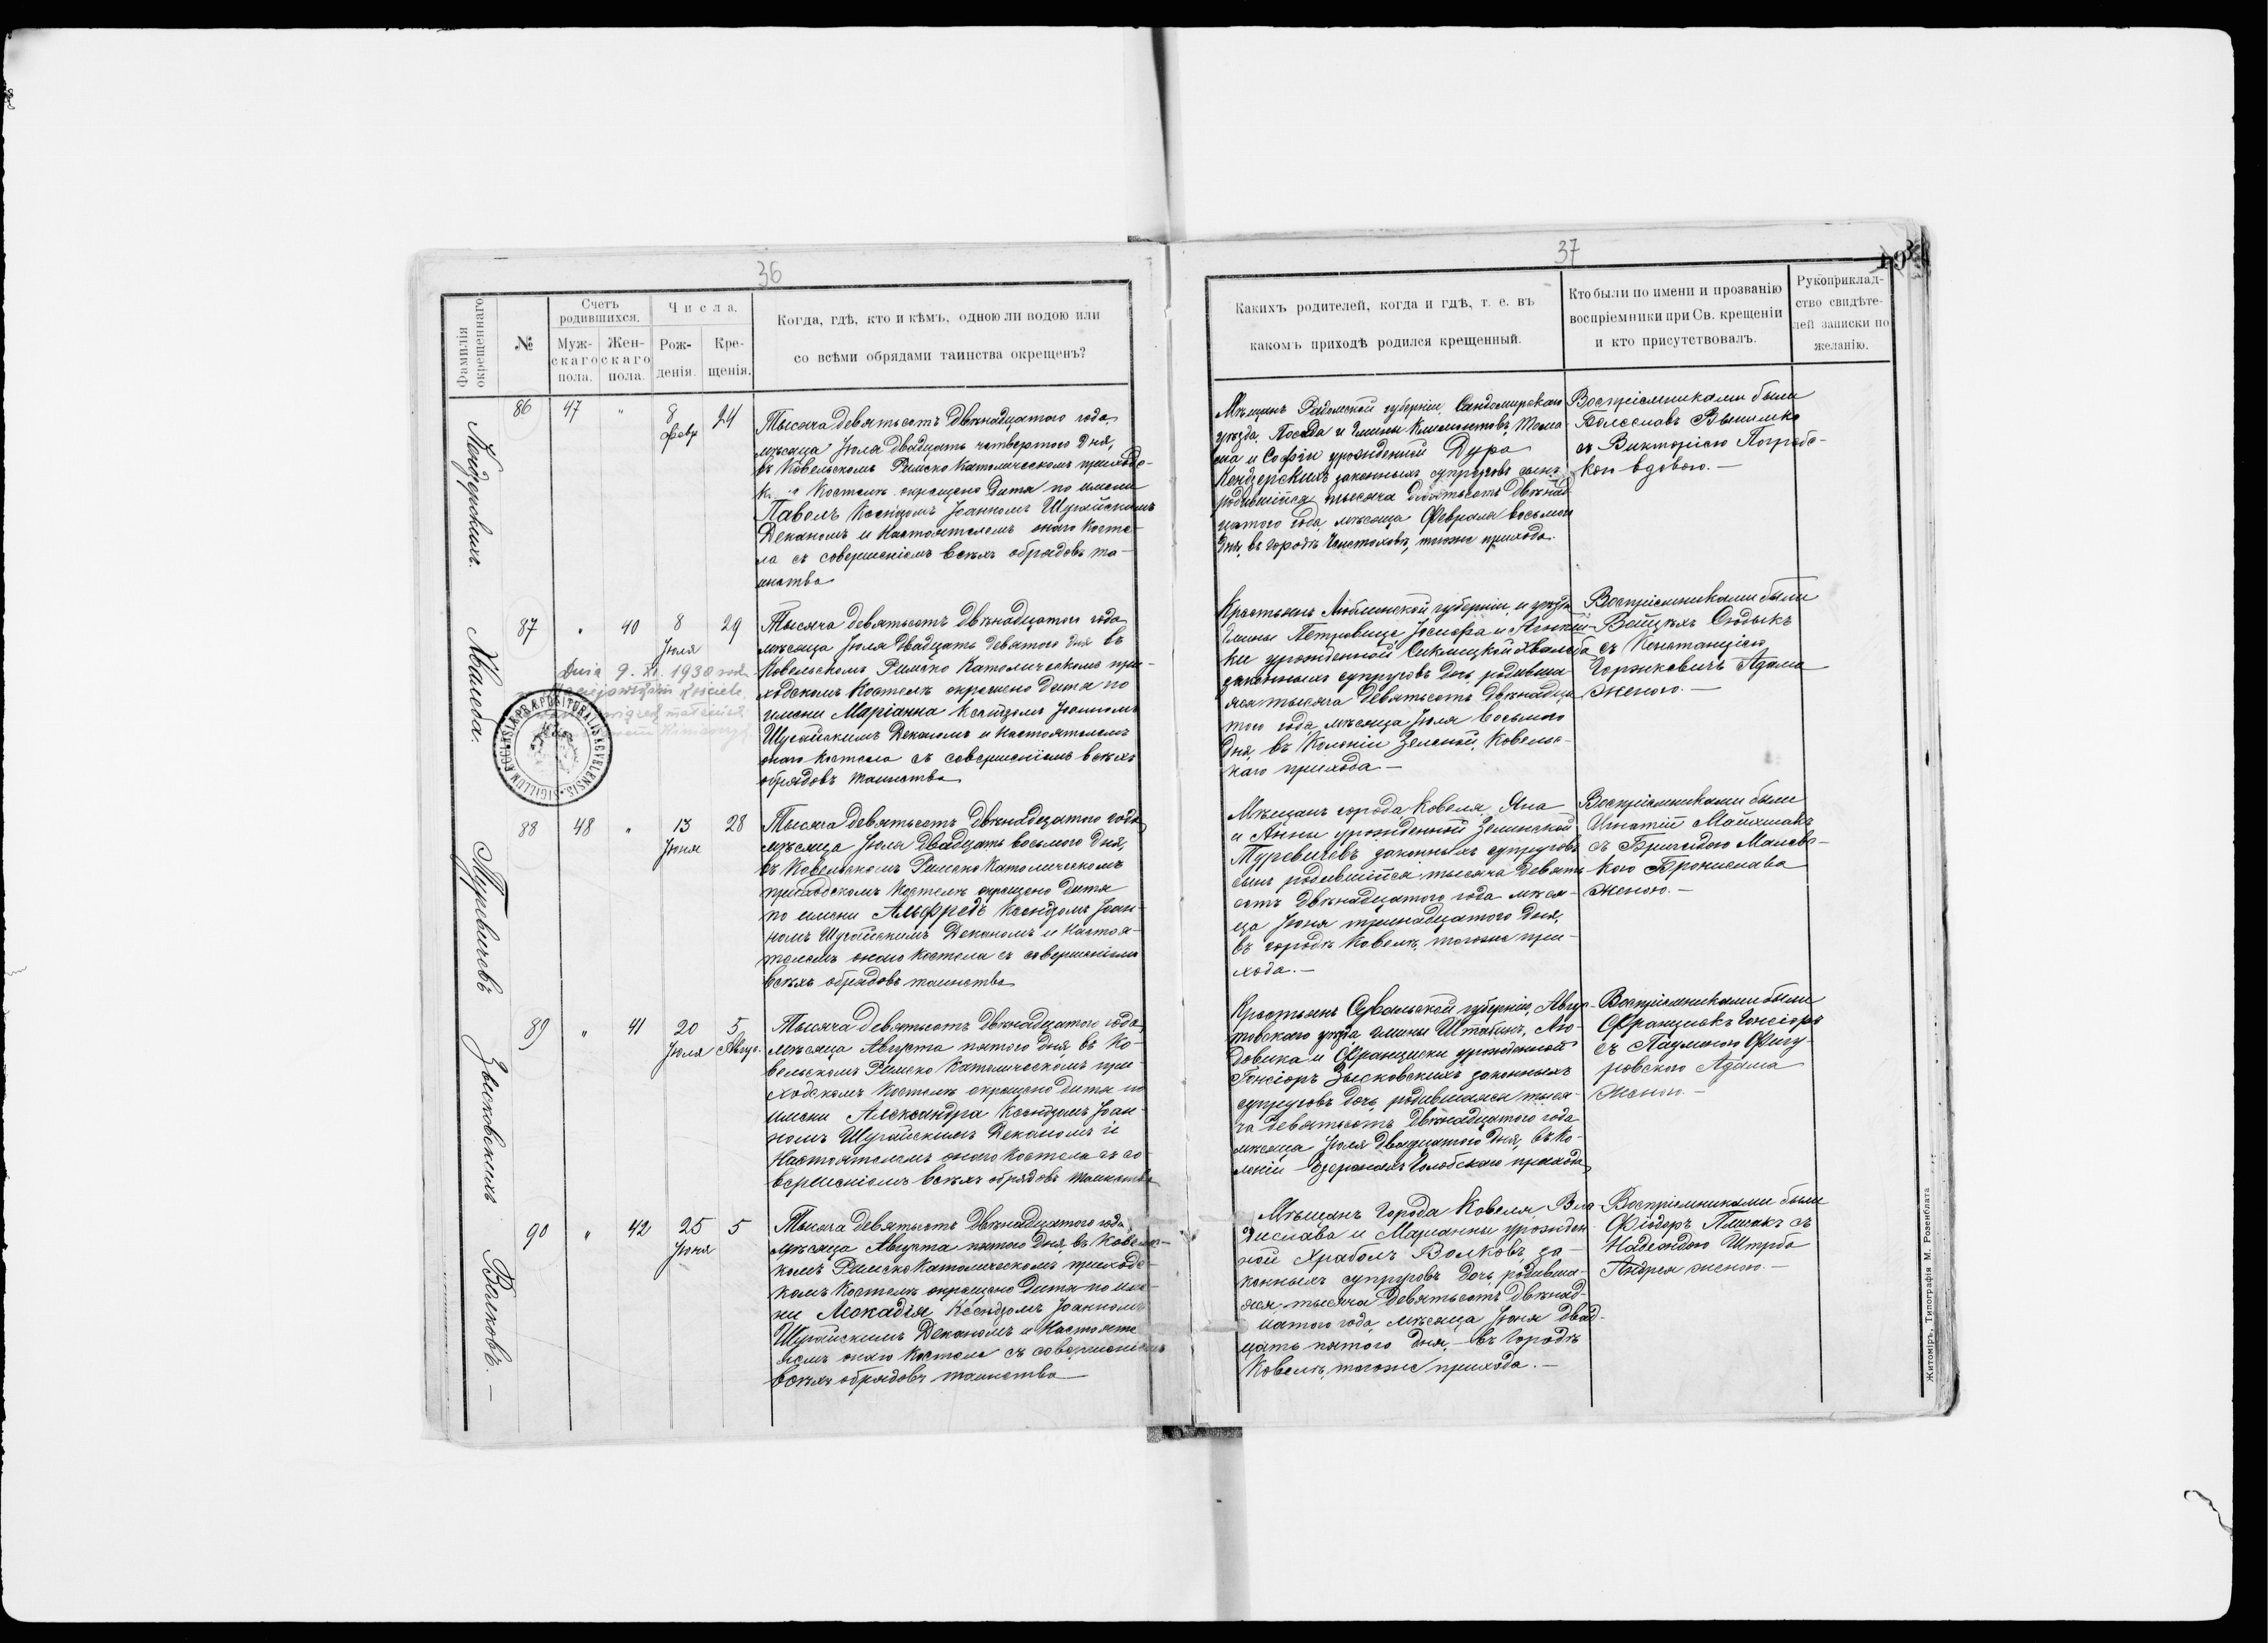 36
Фамилія окрещеннаго.
№
Счетъ родившихся.
Муж-скаго пола.
Жен-скаго пола.
Числа.
Рож-денія.
Кре-щенія.
Когда, гдѣ, кто и кѣмъ, одною ли водою или
со всѣми обрядами таинства окрещенъ?
86
47
"
8
февр
24
Тысяча девятьсотъ двѣнадцатого года
мѣсяца Іюля двадцать четвертого дня,
въ Ковельскомъ Римско Католическомъ приходс-
Костелѣ окрещено дитя по имени
Павелъ Ксендзомъ Іоанномъ Шугайскимъ
Деканомъ и Настоятелемъ онаго Косте-
ла съ совершеніемъ всѣхъ обрядовъ та-
инства
87
"
40
8
Іюля
29
Тысяча девятьсотъ двѣнадцатого года
мѣсяца Іюля двадцать девятого дня въ
Ковельскомъ Римско Католическомъ при-
ходскомъ Костелѣ окрещено дитя по
имени Маріанна Ксендзомъ Іоанномъ
Шугайскимъ Деканомъ и Настоятелемъ
онаго Костела съ совершеніемъ всѣхъ
обрядовъ таинства
Хвалеба.
Dnia 9. XI. 1930
SIGILLUM ECCLESIÆ PRÆPOSITURALIS KOVELENSIS
88
48
"
13
Іюня
28
Тысяча девятьсотъ двѣнадцатого года
мѣсяца Іюля двадцать восьмого дня,
въ Ковельскомъ Римско Католическомъ
приходскомъ Костелѣ окрещено дитя
по имени Альфредъ Ксендзомъ Іоан-
номъ Шугайскимъ Деканомъ и Настоя-
телемъ онаго Костела съ совершеніемъ
всѣхъ обрядовъ таинства
89
"
41
20
Іюля
5
Авгус.
Тысяча девятьсотъ двѣнадцатого года
мѣсяца Августа пятого дня въ Ко-
вельскомъ Римско Католическомъ при-
ходскомъ Костелѣ окрещено дитя по
имени Александра Ксендзомъ Іоан-
номъ Шугайскимъ Деканомъ и
Настоятелемъ онаго Костела съ со-
вершеніемъ всѣхъ обрядовъ таинства
Зысковскихъ
90
"
42
25
Іюня
5
Тысяча девятьсотъ двѣнадцатого года
мѣсяца Августа пятого дня, въ Ковельс-
комъ Римско Католическомъ приходс-
комъ Костелѣ окрещено дитя по име-
ни Леокадія Ксендзомъ Іоанномъ
Шугайскимъ Деканомъ и Настояте
лемъ онаго Костела съ совершеніемъ
всѣхъ обрядовъ таинства
Волковъ.
37
Какихъ родителей, когда и гдѣ, т. е. въ
какомъ приходѣ родился крещенный.
Кто были по имени и прозванію
воспріемники при Св. крещеніи
и кто присутствовалъ.
Рукоприклад-
ство свидѣте-
лей записки по
желанію.
Мѣщанъ Радомской губерніи, Сандомирскаго
уѣзда, Посада и Гмины Климонтовъ, Тома
ша и Софіи урожденной Дура
законныхъ супруговъ сынъ
родившійся тысяча девятьсотъ двѣнад
цатого года мѣсяца Февраля восьмого
дня, въ городѣ Ченстоховѣ, тогоже прихода.
Воспріемниками были
Болеславъ
съ Викторіею
вдовою.—
Крестьянъ Люблинской губерніи и уѣзда
Гмины Петровице Іосифа и
урожденной Хвалеба
законныхъ супруговъ дочь, родивша
яся тысяча девятьсотъ двѣнадца
того года, мѣсяца Іюля восьмого
дня, въ Колоніи Зеленой, Ковельс-
каго прихода.—
Воспріемниками были
съ Констанціею
Адама
женою.—
Мѣщанъ города Ковеля, Яна
и Анны урожденной Зелинской
Туревичевъ законныхъ супруговъ
сынъ родившійся тысяча девять
сотъ двѣнадцатого года мѣся-
ца Іюня тринадцатого дня,
въ городѣ Ковелѣ, тогоже при-
хода.—
Воспріемниками были
Игнатій
съ Бригидою Малевс-
кою Бронислава
женою.—
Крестьянъ Сувалькской губерніи, Авгус-
товскаго уѣзда, гмины Штабинъ, Лю-
довика и Франциски урожденной
Гонсіоръ Зысковскихъ законныхъ
супруговъ дочь, родившаяся тыся-
ча девятьсотъ двѣнадцатого года
мѣсяца Іюля двадцатого дня, въ Ко-
лоніи Голобскаго прихода
Воспріемниками были
Францишекъ Гонсіоръ
съ Паулиною Фигу-
ровскою Адама
женою.—
Мѣщанъ города Ковеля, Вла
дислава и Маріанны урожден
ной Храболъ Волковъ, за-
конныхъ супруговъ дочь, родивша-
яся тысяча девятьсотъ двѣнад-
цатого года, мѣсяца Іюня двад-
цать пятого дня,— въ городѣ
Ковелѣ, тогоже прихода.—
Воспріемниками были
Ѳіодоръ съ
Надеждою Штрба
Андрея женою.—
Житоміръ, Типографія М. Розенблата